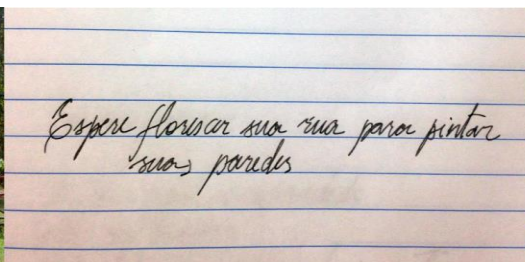 Espere florescer sua rua para pintar
suas paredes